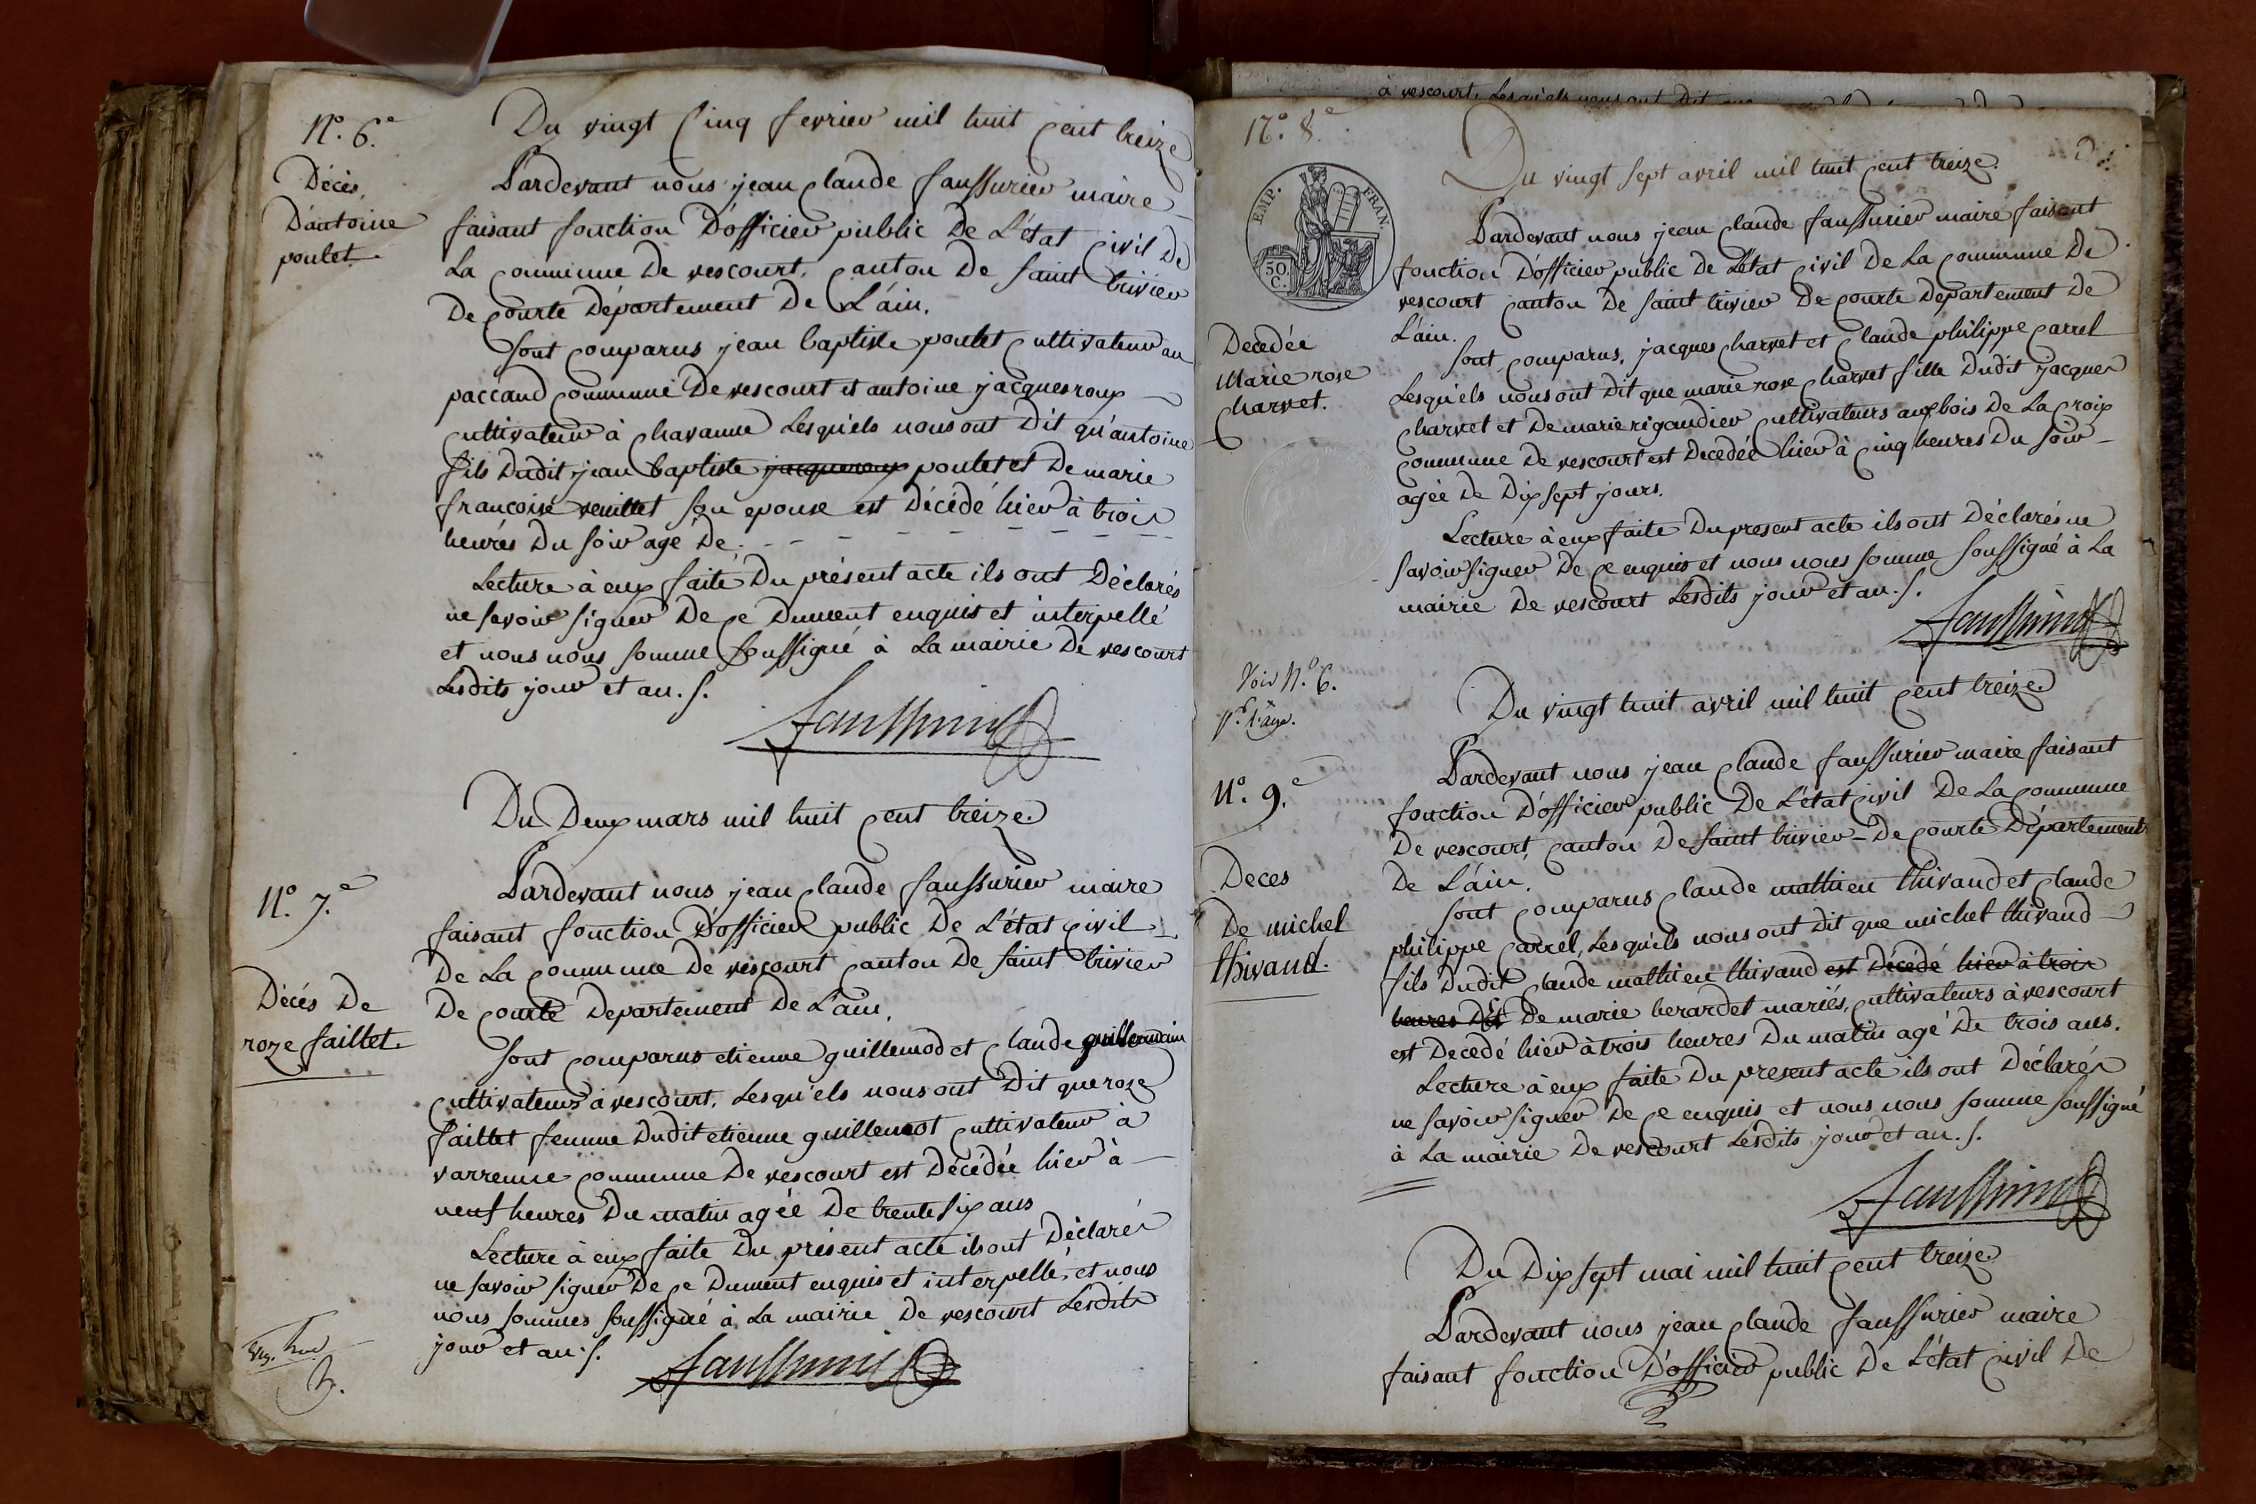 N.º 6.e
Décès
D'antoine
poulet.
Du vingt Cinq fevrier mil huit Cent treize
Pardevant nous jean Claude faussurier maire
faisant fonction D'officier public De L'état Civil De
La Commune De vescourt, Canton De saint trivier
De Courte Département De L'ain.
Sont Comparus jean baptiste poulet Cultivateur au
paccaud Commune De vescourt et antoine jacqueroux
Cultivateur à Chavanne Lesquels nous ont Dit qu'antoine
fils Dudit jean baptiste jacqueroux poulet et De marie
francoise veuillet son epouse est Décédé hier à trois
heures Du soir agé De - - - - - - - -
Lecture à eux faite Du présent acte ils ont Déclarés
ne savoir signer De Ce Dument enquis et interpellé
et nous nous somme soussigné à La mairie De vescourt
Lesdits jour et an. /.
faussurier
Du Deux mars mil huit Cent treize
N.º 7.e
Décés De
roze faillet.
Pardevant nous jean Claude faussurier maire
faisant fonction D'officier public De L'état Civil
De La Commune De vescourt Canton De saint trivier
De Courte Departement De L'ain.
Sont Comparus etienne guillemod et Claude guillermin
Cultivateurs à vescourt, Lesqu'els nous ont Dit que roze
faillet femme Dudit etienne guillemot Cultivateur à
varrenne Commune De vescourt est Décédée hier à
neuf heures Du matin agée De trente six ans
Lecture à eux faite Du présent acte ils ont Déclarés
ne savoir signer De Ce Dument enquis et interpellé, et nous
nous sommes soussigné à La mairie De vescourt Lesdits
jour et an. /.
faussurier
à vescourt, Lesqu'els nous ont Dit que
N.º 8.e
EMP. FRAN.
50.
C.
Decedée
Marie rose
Charvet.
Du vingt sept avril mil huit Cent treize.
Pardevant nous jean Claude faussurier maire faisant
fonction D'officier public De L'état Civil De La Commune De
vescourt Canton De saint trivier De Courte Departement De
L'ain.
Sont Comparus, jacques Charvet et Claude philippe Carrel
Lesqu'els nous ont Dit que marie rose Charvet fille Dudit jacques
Charvet et De marie rigaudier Cultivateurs aux bois De La Croix
Commune De vescourt est Decedée hier à Cinq heures Du soir
agée De Dix sept jours.
Lecture à eux faite Du present acte ils ont Déclarés ne
savoir signer De Ce enquis et nous nous somme soussigné à La
mairie De vescourt Lesdits jour et an. /.
faussurier
Voir N.º 6.
pr. l'age.
Du vingt huit avril mil huit Cent treize
N.º 9.e
Deces
De michel
thivaud.
Pardevant nous jean Claude faussurier maire faisant
fonction D'officier public De L'état Civil De La Commune
De vescourt, Canton De saint trivier De Courte Département
De L'ain.
Sont Comparus Claude mathieu thivaud et Claude
philippe Carrel, Lesqu'els nous ont Dit que michel thivaud
fils Dudit Claude mathieu thivaud est Décédé hier à trois
heures Du De marie berardet mariés, Cultivateurs à vescourt
est Decedé hier à trois heures Du matin agé De trois ans.
Lecture à eux faite Du present acte ils ont Déclarés
ne savoir signer De Ce enquis et nous nous somme soussigné
à La mairie De vescourt Lesdits jour et an. /.
faussurier
Du Dix sept mai mil huit Cent treize
Pardevant nous jean Claude faussurier maire
faisant fonction D'officier public De L'état Civil De